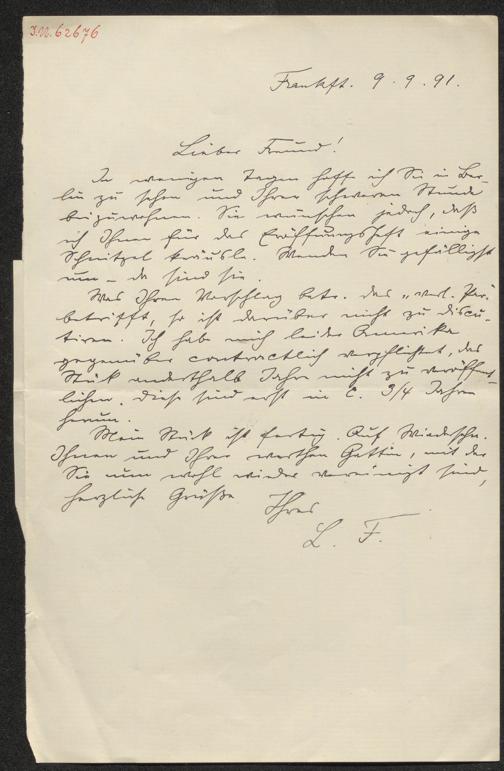 I.N. 62676
Frankft. 9. 9. 91.
Lieber Freund!
In wenigen Tagen hoffe ich Sie in Ber-
lin zu sehen und Ihrer schweren Stunde
beizuwohnen. Sie wünschen jedoch, daß
ich Ihnen für das Eröffnungsheft einige
Schnitzel kräusle. Wenden Sie gefälligst
um – da sind sie.
Was Ihren Vorschlag betr. des „verl. Par."
betrifft, so ist darüber nicht zu discu-
tiren. Ich habe mich leider Amerika
gegenüber contractlich verpflichtet, das
Stück anderthalb Jahre nicht zu veröffent-
lichen. Diese sind erst in c. 3/4 Jahren
herum.
Mein Stück ist fertig. Auf Wiedersehn.
Ihnen und Ihrer werthen Gattin, mit der
Sie nun wohl wieder vereinigt sind,
herzliche Grüße
Ihres
L. F.